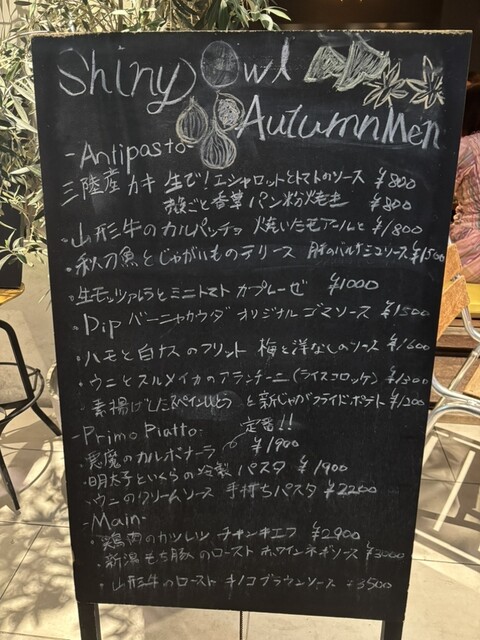 Shiny Owl
Autumn Men
-Antipasto
三陸産カキ 生で！エシャロットとトマトのソース ¥800
殻ごと香草パン粉焼き ¥800
・山形牛のカルパッチョ 焼いたモアールと ¥1800
・秋刀魚とじゃがいものテリース 肝のバルサミコソース ¥1500
・生モッツァラとミニトマト カプレーゼ ¥1000
・Dip バーニャカウダ オリジナルゴマソース ¥1500
・ハモと白ナスのフリット 梅と洋なしのソース ¥1600
・ウニとスルメイカのアランチーニ(ライスコロッケ) ¥1300
・素揚げした と新じゃがフライドポテト ¥1200
-Primo Piatto- 定番！！
・悪魔のカルボナーラ ¥1900
・明太子といくらの冷製パスタ ¥1900
・ウニのクリームソース 手打ちパスタ ¥2200
-Main-
・鶏肉のカツレツ チキンキエフ ¥2900
・新潟もち豚のロースト 赤ワインネギソース ¥3000
・山形牛のロースト キノコブラウンソース ¥3500